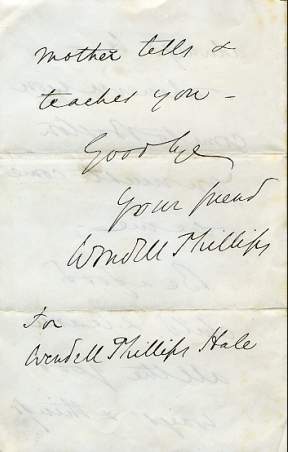 mother tells &
teaches you –
Good bye
Your friend
Wendell Phillips
For
Wendell Phillips Hale